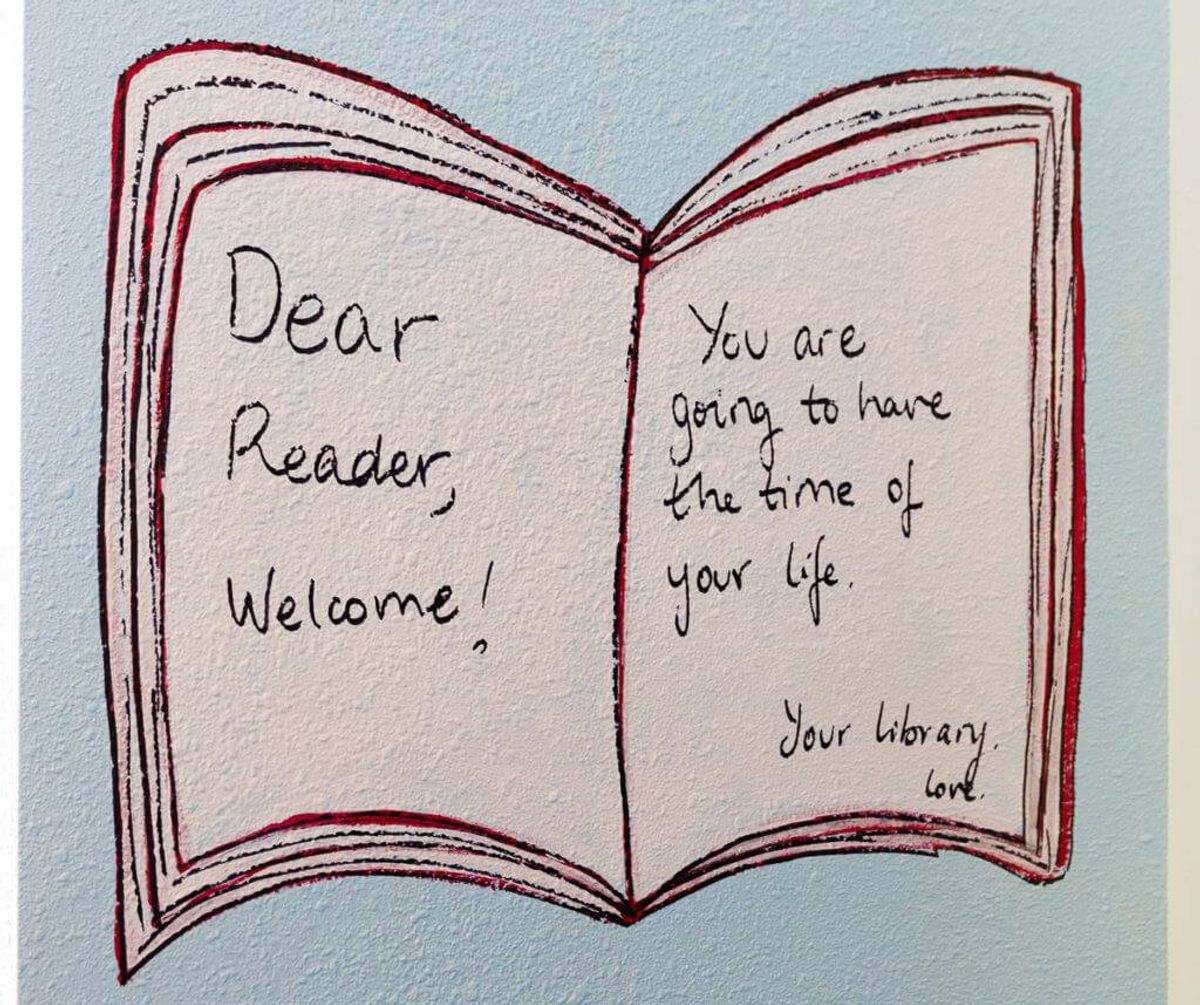 Dear
Reader,
Welcome!
You are
going to have
the time of
your life.
Your library.
love.